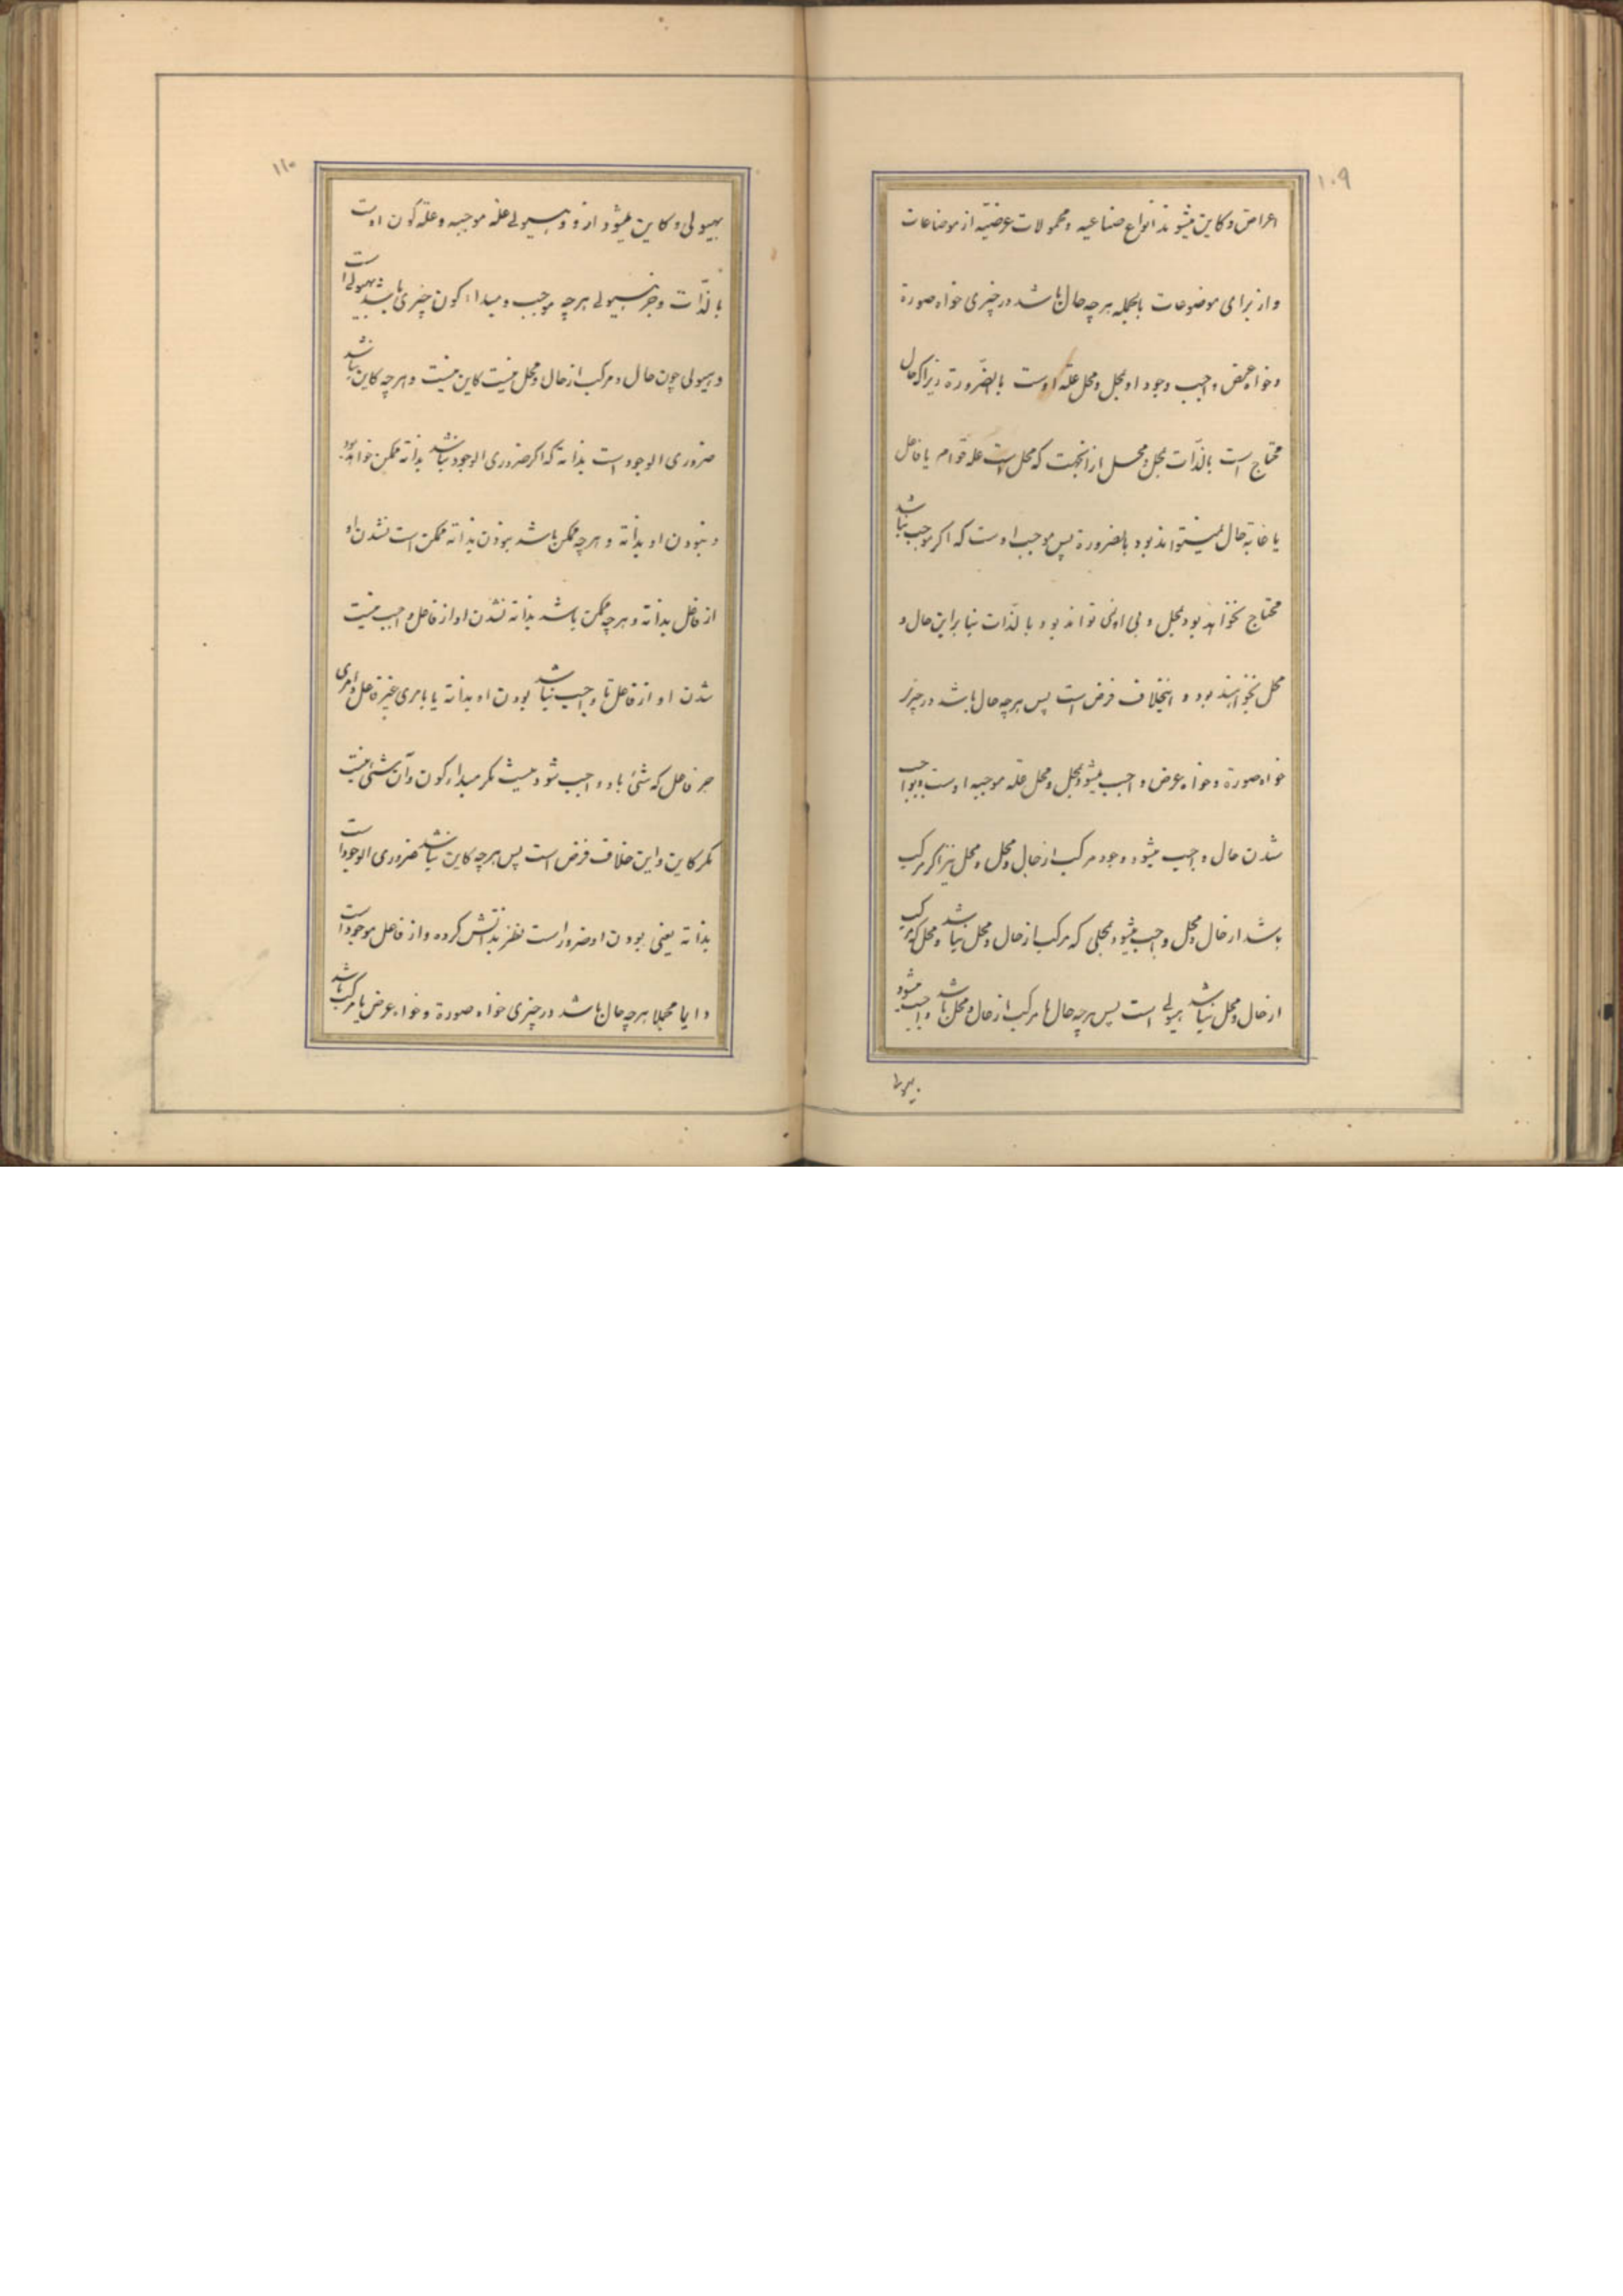 ۱۰۹
اعراض و کاین میشوند انواع صناعیه و محمولات عرضیّه از موضاعات
و از برای موضوعات بالجمله هرچه حال باشد در چیزی خواه صورة
و خواه عرض واجب وجود او بمحل و محل علّة اوست بالضّرورة زیرا که حال
محتاج است بالذّات بمحل و محل از انجهت که محل است علة قوام یا فاعل
یا غایة حال نمیتواند بود بالضرورة پس موجب اوست که اکر موجب نباشد
محتاج نخواهد بود بمحل و بی او نمی تواند بود بالذّات بنابراین حال و
محل نخواهند بود و اینخلاف فرض است پس هرچه حال باشد در چیز
خواه صورة و خواه عرض واجب میشود بمحل و محل علة موجبه اوست و بواجب
شدن حال واجب میشود وجود مرکب از حال و محل و محل نیز اکر مرکب
باشد از حال و محل واجب میشود بمحلی که مرکب از حال و محل نباشد و محل که مرکب
از حال و محل نباشد هیولی است پس هرچه حال یا مرکب از حال و محل باشد واجب میشود
بهیولی
۱۱۰
بهیولی و کاین میشود ازو و هیولی علة موجبه و علّة کون اوست
بالذّات و جز هیولی هرچه موجب و مبداء کون چیزی باشد بهیولی است
و هیولی چون حال و مرکب از حال و محل نیست کاین نیست و هرچه کاین نباشد
ضروری الوجود است بذاته که اکر ضروری الوجود نباشد بذاته ممکن خواهد بود
و نبودن او بذاته و هرچه ممکن باشد نبودن بذاته ممکن است نشدن او
از فاعل بذاته و هرچه ممکن باشد بذاته نشدن او از فاعل واجب نیست
شدن او از فاعل تا واجب نباشد بودن او بذاته یا بامری غیر فاعل و امری
جز فاعل که شئ باو واجب شود نیست مکر مبداء کون و آن شئ نیست
مکر کاین و این خلاف فرض است پس هرچه کاین نباشد ضروری الوجود است
بذاته یعنی بودن او ضرور است نظر بذاتش کرده و از فاعل موجود است
دایما مجملا هرچه حال باشد در چیزی خواه صورة و خواه عرض یا مرکب باشد